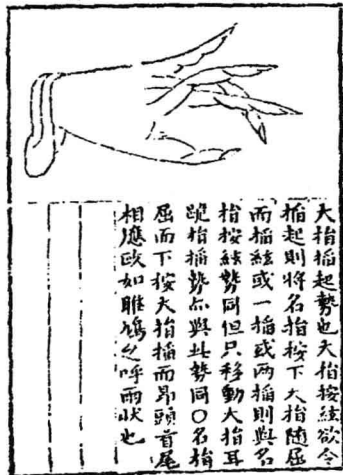 大指搯起勢也大指按絃欲令
搯起則將名指按下大指隨屈
而搯絃或一搯或两搯則與名
指按絃勢同但只移動大指耳
跪指搯勢亦與此勢同○名指
屈而下按大指搯而昻頭首尾
相應如雎鳩之呼雨狀也